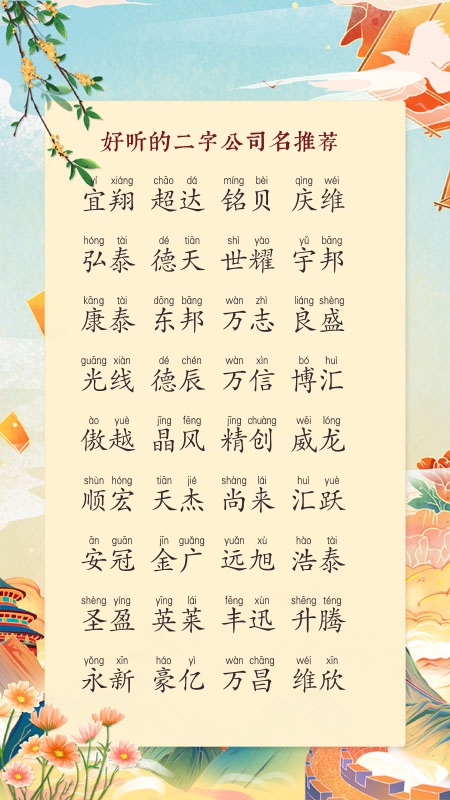 好听的二字公司名推荐
yí xiáng chāo dá míng bèi qìng wéi
宜翔 超达 铭贝 庆维
hóng tài dé tiān shì yào yǔ bāng
弘泰 德天 世耀 宇邦
kāng tài dōng bāng wàn zhì liáng shèng
康泰 东邦 万志 良盛
guāng xiàn dé chén wàn xìn bó huì
光线 德辰 万信 博汇
ào yuè jīng fēng jīng chuàng wēi lóng
傲越 晶风 精创 威龙
shùn hóng tiān jié shàng lái huì yuè
顺宏 天杰 尚来 汇跃
ān guān jīn guǎng yuǎn xù hào tài
安冠 金广 远旭 浩泰
shèng yíng yīng lái fēng xùn shēng téng
圣盈 英莱 丰迅 升腾
yǒng xīn háo yì wàn chāng wéi xīn
永新 豪亿 万昌 维欣